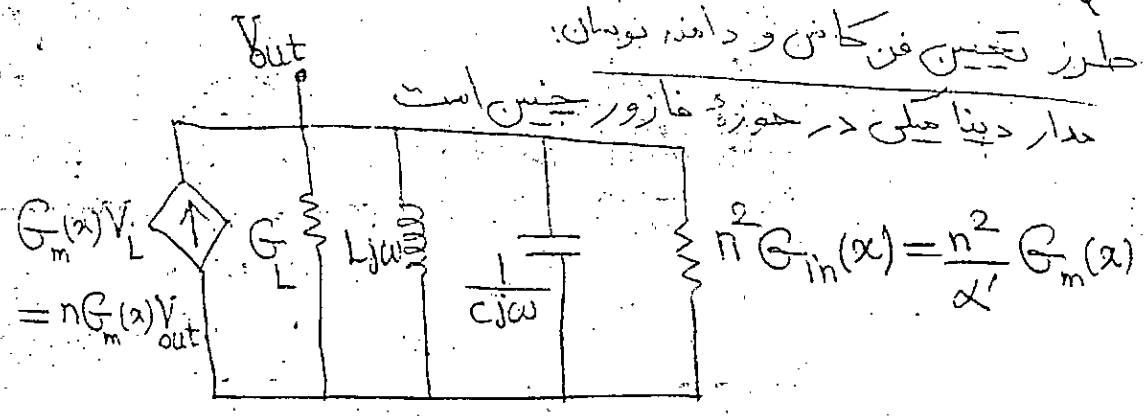 طرز تعیین فرکانس و دامنه نوسان:
مدار دینامیکی در حوزهٔ فازور چنین است
Vout
G_m(x)V_i
= nG_m(x)V_out
G_L
Ljω
1/cjω
n²G_in(x) = n²/α' G_m(x)